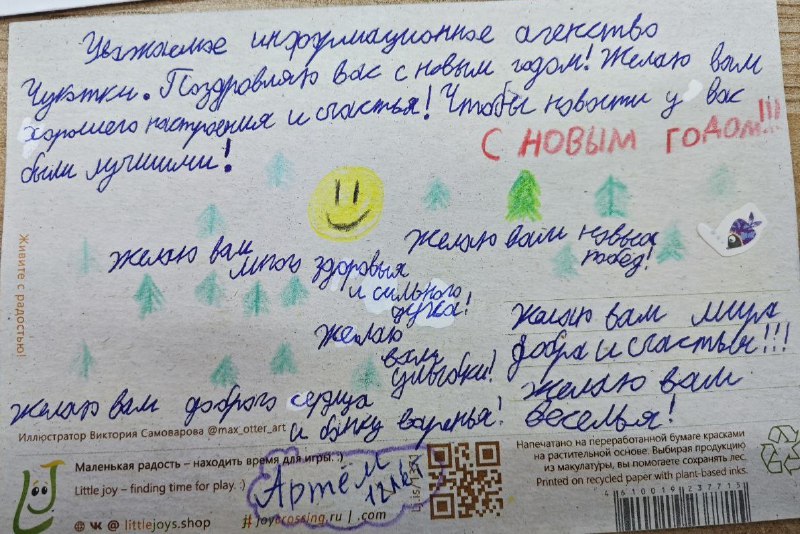 Уважаемое информационное агенство
Чукотки. Поздровляю вас с новым годом! Желаю вам
хорошего настроения и счастья! Чтобы новости у вас
были лучшими!
С НОВЫМ ГОДОМ!!!
Желаю вам
много здоровья
и сильного
духа!
Желаю вам новых
побед!
Желаю
вам
улыбки!
Желаю вам мира
добра и счастья!!!
Желаю вам
веселья!
Желаю вам доброго сердца
и банку варенья!
Живите с радостью!
Иллюстратор Виктория Самоварова @max_otter_art
Маленькая радость – находить время для игры. :)
Little joy – finding time for play. :)
littlejoys.shop
joycrossing.ru | .com
Артём
12 лет
Напечатано на переработанной бумаге красками
на растительной основе. Выбирая продукцию
из макулатуры, вы помогаете сохранять лес.
Printed on recycled paper with plant-based inks.
4610019237715